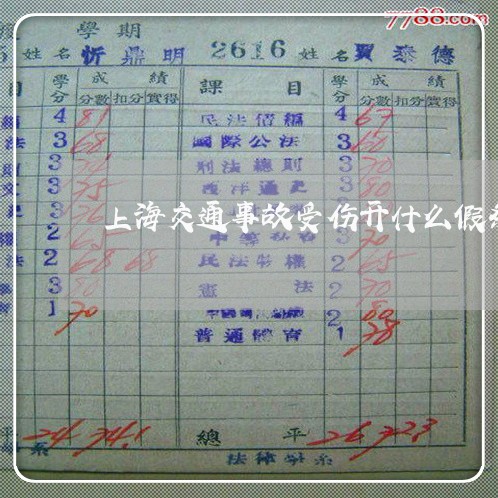 7788.com
學期
姓名 忻鼎明 2616 姓名 賈泰德
目 學分 成績 課目 學分 成績
分數 扣分 實得 分數 扣分 實得
4 81 民法債編 4 67
法 3 68 國際公法 3 60
3 刑法總則 3 70
3 75 西洋通史 3 80
3 76 3
上海交通事故受伤开什么假
權 2 65 3 70
法 2 68 68 民法物權 2 65
3 80 憲法 2 70
1 70 2 80
普通體育 1 78
平 24 74.1 總平 26 72.3
系 法律學系